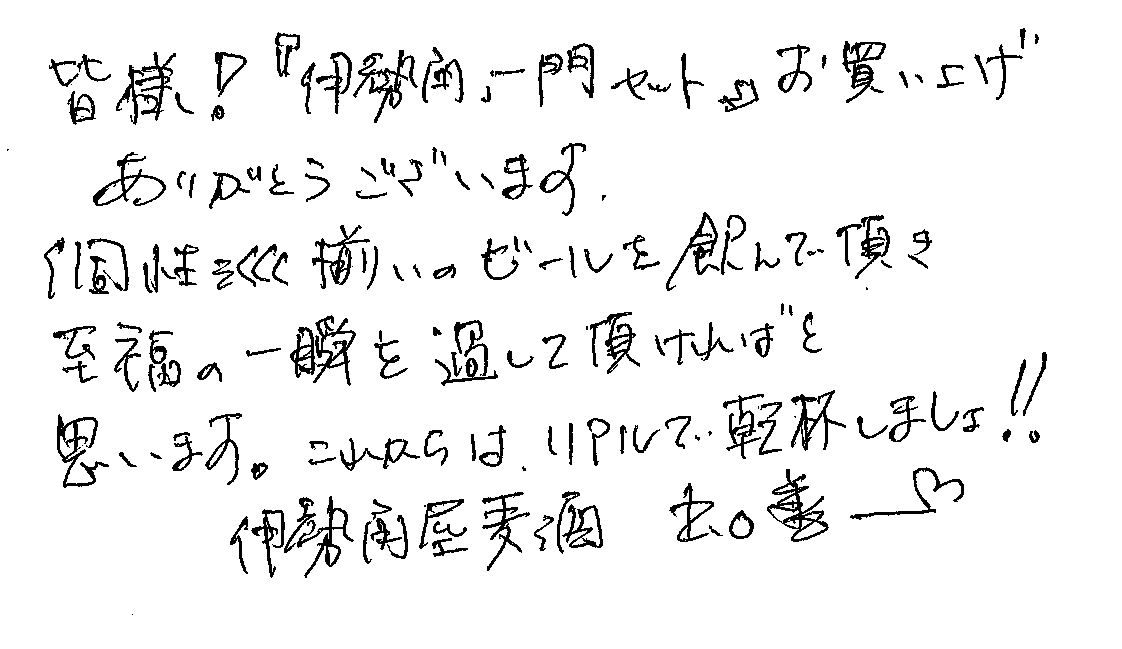 皆様!『伊勢角一門セット』お買い上げ
ありがとうございます.
個性ぞくぞく揃いのビールを飲んで頂き
至福の一瞬を過して頂ければと
思います。これからは、リアルで乾杯しましょ!!
伊勢角屋麦酒 出口善一